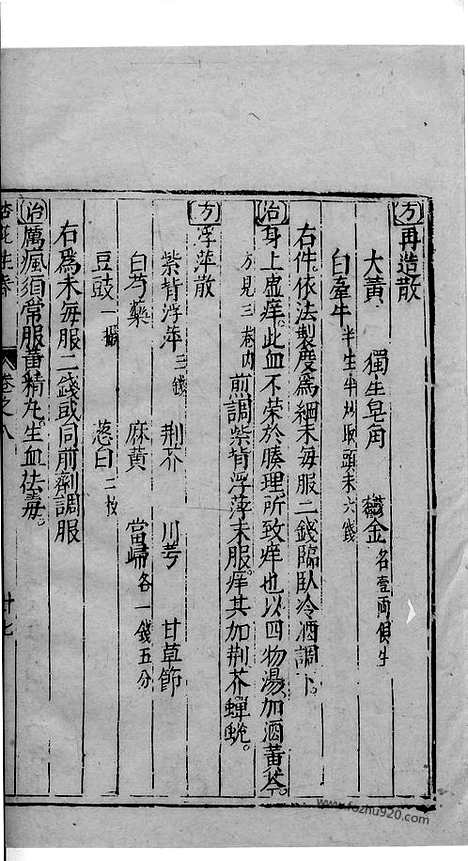 方 再造散
大黃 獨生皂角 鬱金 各壹兩俱生
白牽牛 半生半炒取頭末六錢
右件依法製度為細末每服二錢臨臥冷酒調下。
治 身上虛痒。此血不荣於腠理所致痒也以四物湯加酒黃芩。
方見三卷內 煎調紫背浮萍末服。痒甚加荆芥蟬蛻。
方 浮萍散
紫背浮萍 三錢 荆芥 川芎 甘草節
白芍藥 麻黃 當歸 各一錢五分
豆豉 一撮 葱白 二枚
右為末每服二錢或同前劑調服
治 厲瘋須常服黃精丸。生血祛毒。
杏苑生春 卷之八 廿七
www.fozhu920.com